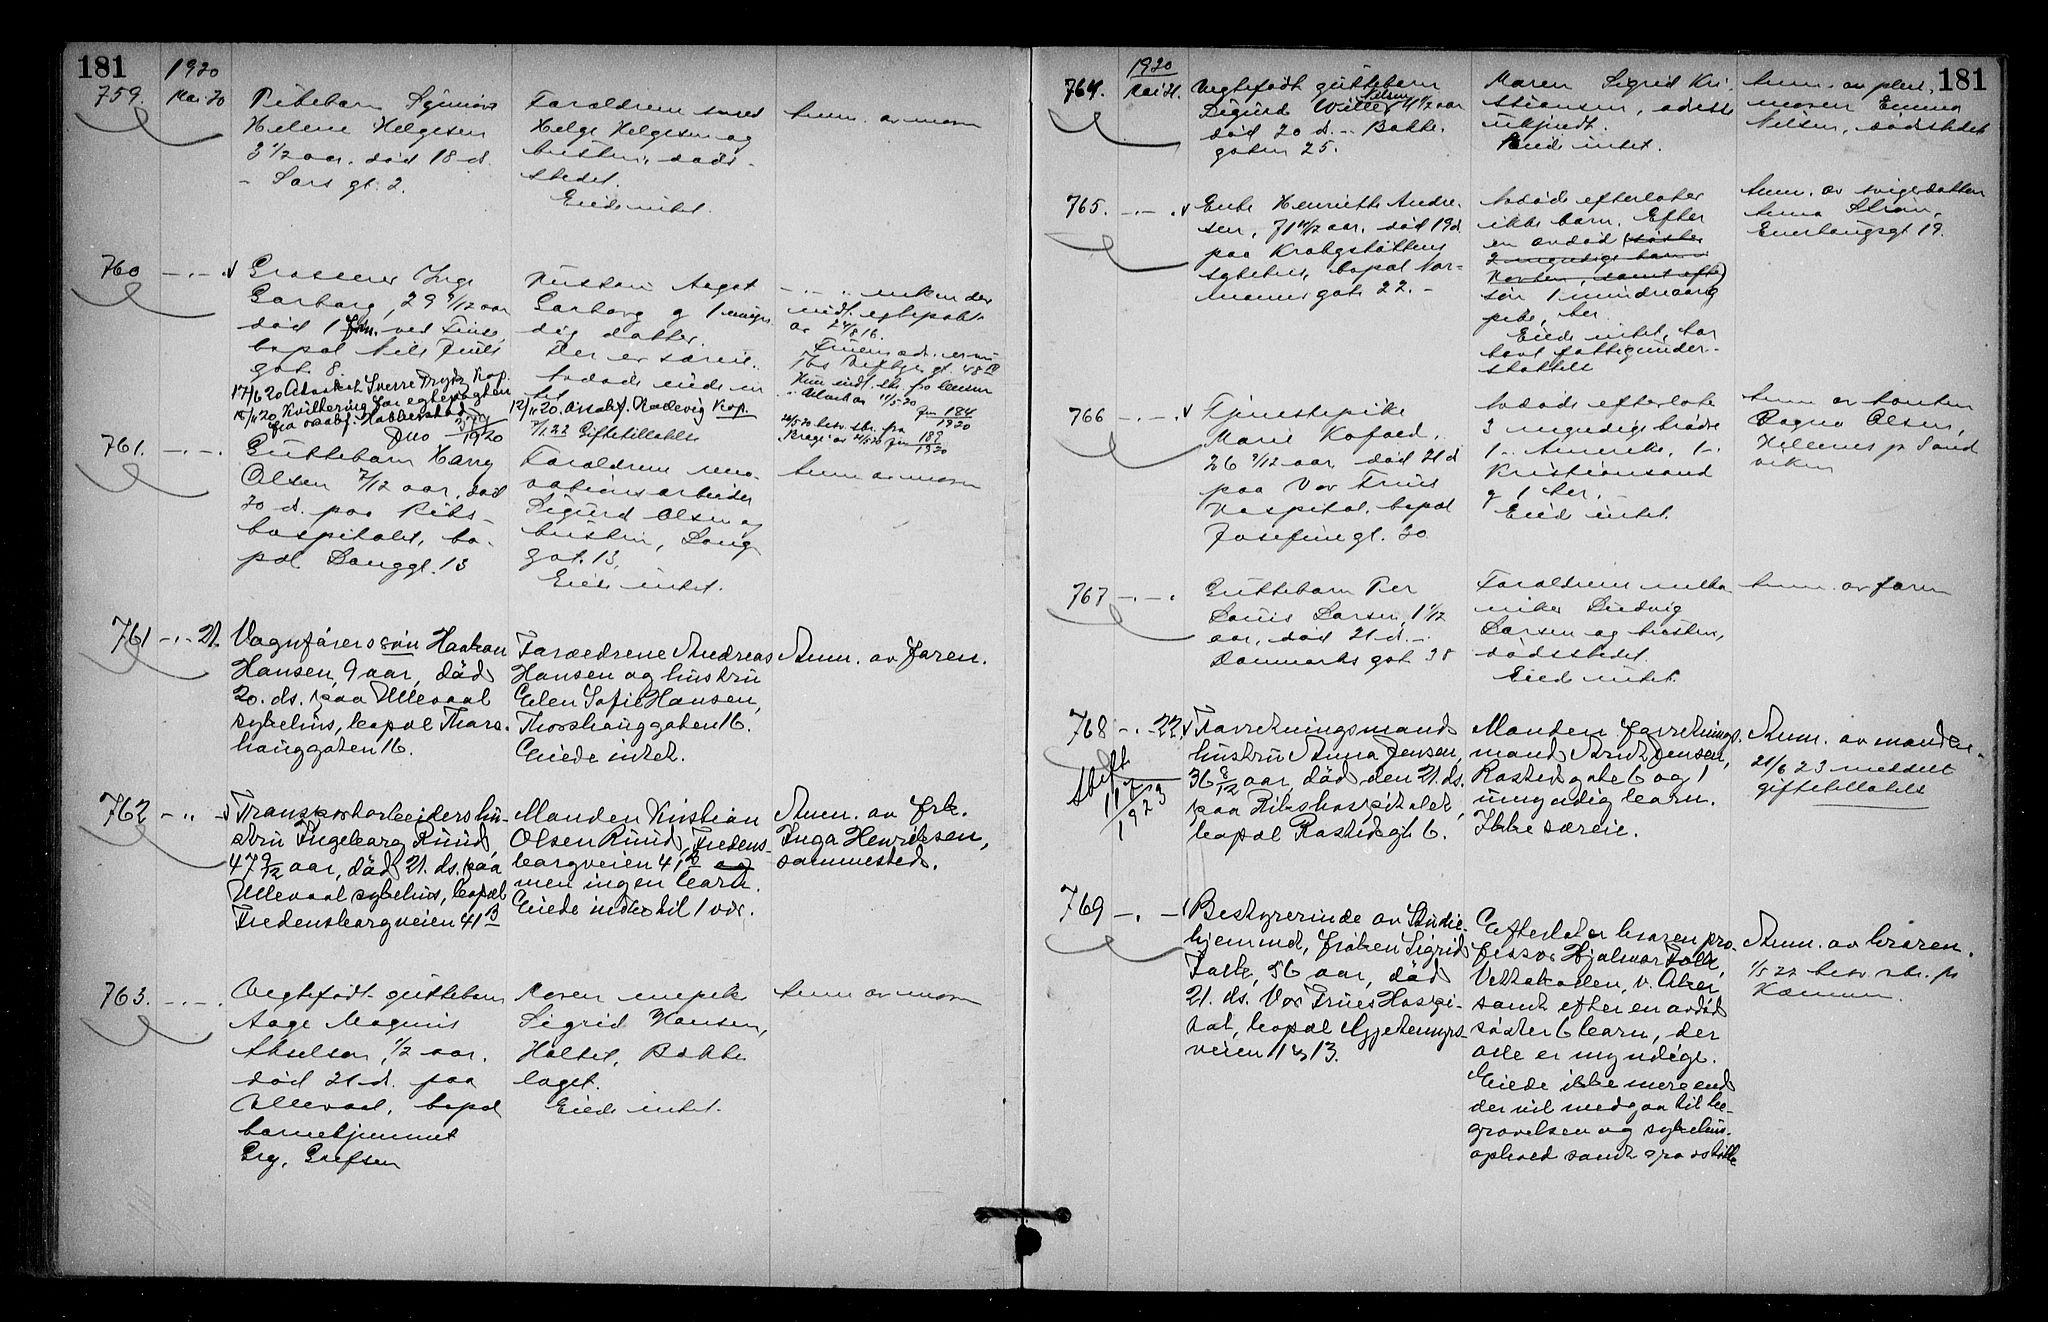 181
1920
759. Mai 20
Pikebarn
Helene Helgesen
3 1/2 aar, død 18 d.
- Sars gt. 2.
Forældrene
Helge Helgesen og
hustru, døds-
stedet.
Eiede intet.
Anm. av moren
760 -.-.
Grosserer Inge
Garborg, 29 9/12 aar
død 1 ved Finse,
bopæl Niels Juels
gate 8.
Garborg og 1 umyn-
dig datter.
Der er særeie.
-.- enken der
indl. egtepakt
av 24/8 16.
17/6 20 Advokat Sverre Kop.
15/11 20 Kvittering for egtepagten
1920
Giftetillatelse
184
1920
761. -.-.
Guttebarn Harry
Olsen 7/12 aar, død
20 d. paa Riks-
hospitalet, bo-
pæl Langgt. 13
Forældrene reno-
vationsarbeider
Sigurd Olsen og
hustru, Lang-
gat. 13.
Eiede intet.
Anm. av moren
761 -.- 21.
Vognførers søn Haakon
Hansen, 9 aar, død
20. ds. paa Ullevaal
sykehus, bopæl Thors-
hauggaten 16.
Forældrene Andreas
Hansen og hustru
Elen Sofie Hansen,
Thorshauggaten 16.
Eiede intet.
Anm. av faren.
762 -.. -
Transportarbeiders hu-
stru Ingeborg Ruud,
47 9/12 aar, død 21. ds. paa
Ullevaal sykehus, bopæl
Fredensborgveien 41 B
Manden Kristian
Olsen Ruud, Fredens-
borgveien 41 B og
men ingen barn.
Eiede indbo til 1 vær.
Anm. av frk.
Inga Henriksen,
sammesteds.
763. -.-.
Uegtefødt guttebarn
Aage Magnus
Akselsen, 1/2 aar.
død 21 d. paa
Ullevaal, bopæl
barnehjemmet
Grefsen
Moren enepike
Sigrid Hansen,
Holtet, Bække-
laget.
Eiede intet.
Anm. av moren
181
1920
764. Mai 21.
Uegtefødt guttebarn
Sigurd Nilsen 4 1/2 aar
død 20 d. -.- Bakke-
gaten 25.
Maren Sigrid Kri-
stiansen, adresse
ukjendt.
Eiede intet.
Anm. av pleie-
moren Emma
Nilsen, dødsstedet
765. -.-.
Enke Henriette Andre-
sen, 71 aar, død 19 d.
paa Krohgstøttens
sykehus, bopæl Nor-
manns gate 22. -
Avdøde efterlater
ikke barn. Efter
en avdød søster
2 myndige barn i
Horten, samt efter
søn 1 mindreaarig
pike, her.
Eiede intet, har
hat fattigunder-
støttelse
Anm. av svigerdatter
Anna
Enerhaugsgt 19.
766 -.-.
Tjenestepike
Marie Kofoed,
26 9/12 aar, død 21 d
paa Vor Frues
Hospital, bopæl
Josefinegt. 20
Avdøde efterlater
3 myndige brødre
1 i Amerika, 1 i
Kristiansand
og 1 her.
Eiede intet.
Anm. av tanten
Dagny Olsen,
Hellerud pr Sand-
viken
767 -.-.
Guttebarn Per
Louis Larsen, 1 1/12
aar, død 21 d. -.-
Danmarks gat. 38
Forældrene meka-
niker Ludvig
Larsen og hustru,
dødsstedet.
Eiede intet.
Anm. av faren
768 -.- 22.
Skift
117
1923
Forretningsmands
hustru Anna Jensen,
36 8/12 aar, død den 21. ds.
paa Rikshospitalet,
bopæl Rostedsgt 6.
Manden forretnings-
mand Arnt Jensen,
Rostedsgate 6 og 1
umyndig barn.
Ikke særeie.
Anm. av manden.
21/6 23 meddelt
giftetillatelse
769 -.-
Bestyrerinde av Studie-
hjemmet, frøken Sigrid
Falk, 56 aar, død
21. ds. Vor Frues Hospi-
tal, bopæl Gjetemyrs-
veien 11 og 13.
Efterlater broren pro-
fessor Hjalmar Falk,
Vettakollen, v. Aker
samt efter en avdød
søster 6 barn, der
alle er myndige.
Eiede ikke mere end
der vil medgaa til be-
gravelsen og sykehus-
ophold samt gravstøtte
Anm. av broren.
1/5 22 bev. skr. fr.
Kæmner.